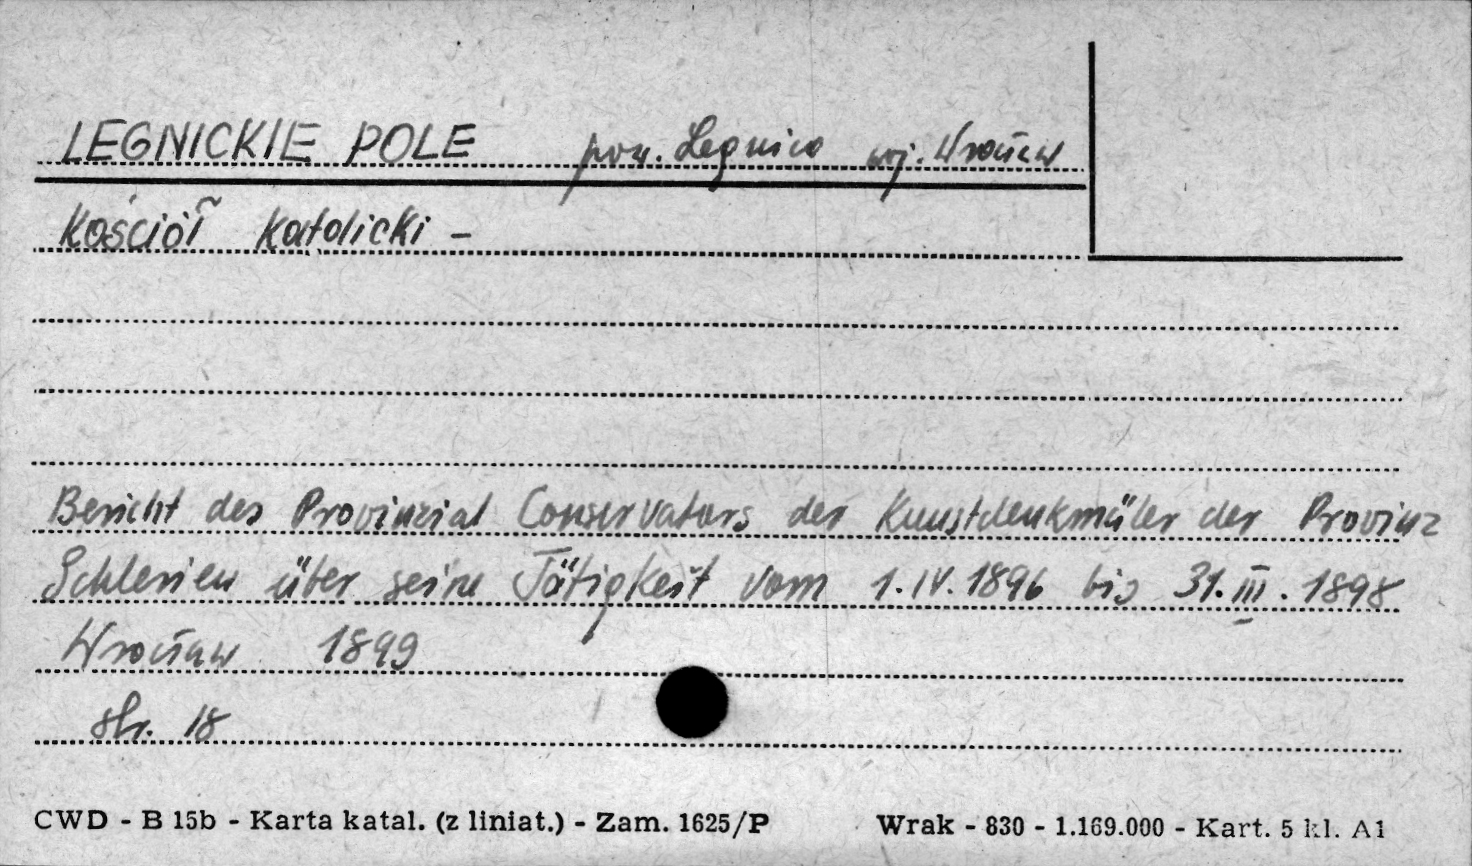 LEGNICKIE POLE pow. Legnica woj. Wrocław
Kościół Katolicki -
Bericht des Provinzial Conservators der Kunstdenkmäler der Provinz
Schlesien über seine Tätigkeit vom 1.IV.1896 bis 31.III.1898
Wrocław 1899
str. 18
CWD - B 15b - Karta katal. (z liniat.) - Zam. 1625/P Wrak - 830 - 1.169.000 - Kart. 5 kl. A1